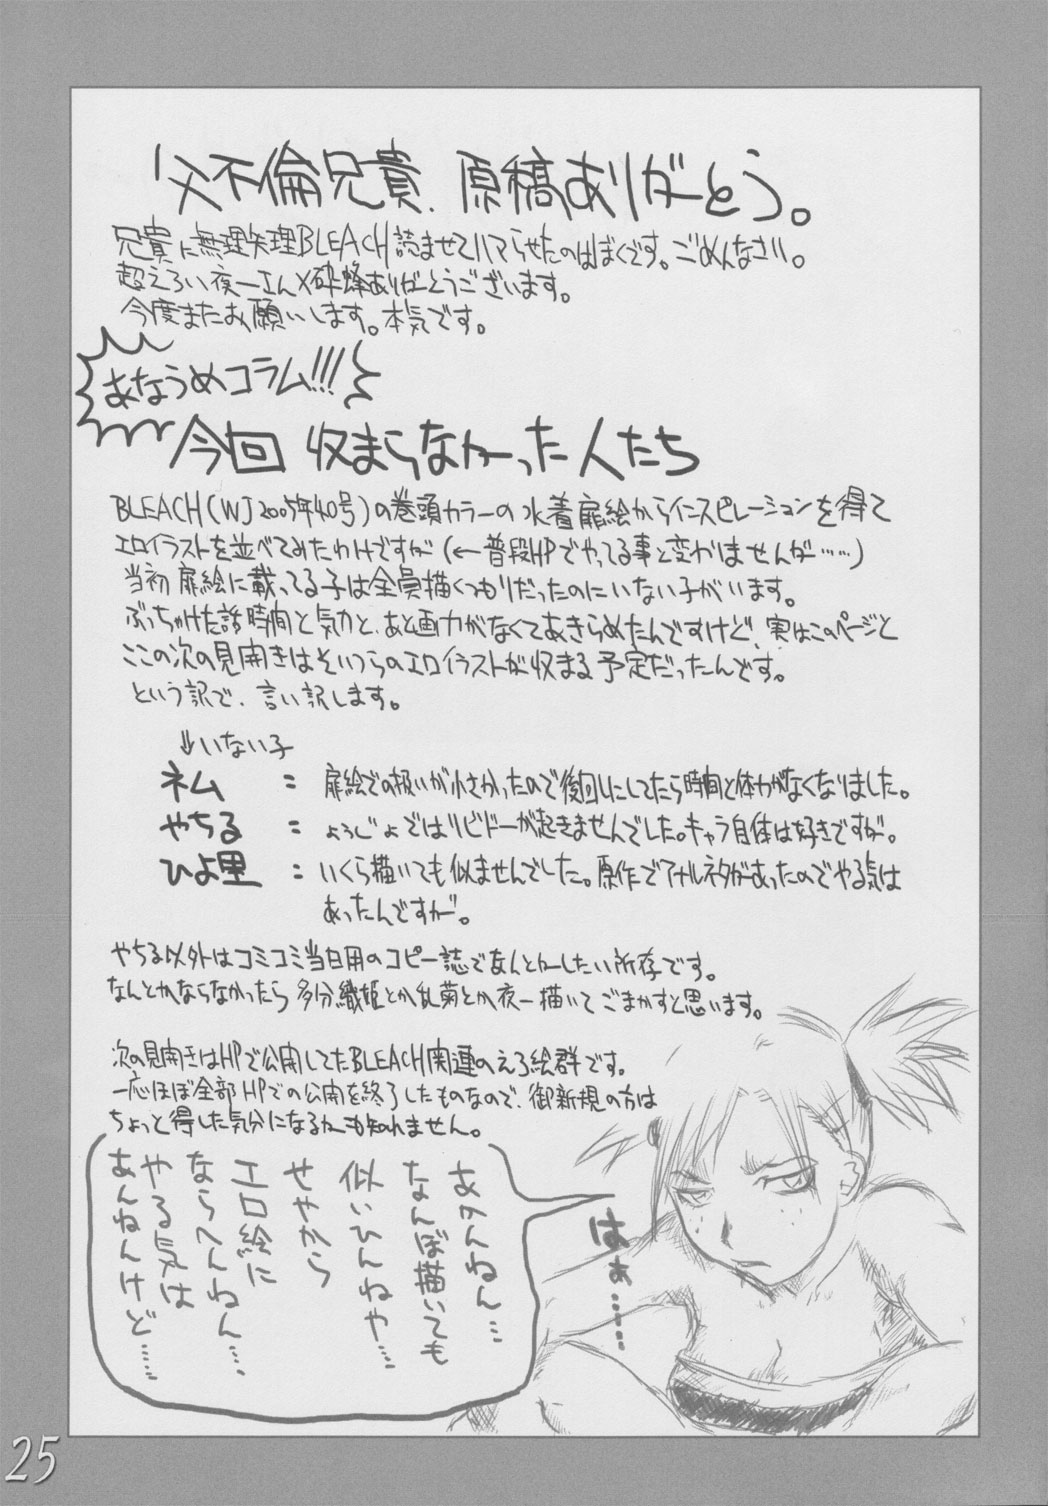 父不倫兄貴、原稿ありがーとう。
兄貴に無理矢理BLEACH読ませてハマらせたのはぼくです。ごめんなさい。
超えろい夜一さん×砕蜂ありがとうございます。
今度またお願いします。本気です。
あなうめコラム!!!
今回 収まらなかった人たち
BLEACH(WJ2005年40号)の巻頭カラーの水着扉絵からインスピレーションを得て
エロイラストを並べてみたわけですが(←普段HPでやってる事と変わりませんが……)
当初扉絵に載ってる子は全員描くつもりだったのにいない子がいます。
ぶっちゃけた話時間と気力と、あと画力がなくてあきらめたんですけど、実はこのページと
ここの次の見開きはそいつらのエロイラストが収まる予定だったんです。
という訳で、言い訳します。
↓いない子
ネム : 扉絵での扱いが小さかったので後回しにしてたら時間と体力がなくなりました。
やちる : ようじょではリビドーが起きませんでした。キャラ自体は好きですが。
ひよ里 : いくら描いても似ませんでした。原作でアナルネタがあったのでやる気は
あったんですが。
やちる以外はコミコミ当日用のコピー誌でなんとかしたい所存です。
なんとかならなかったら多分織姫とか乱菊とか夜一描いてごまかすと思います。
次の見開きはHPで公開してたBLEACH関連のえろ絵群です。
一応ほぼ全部HPでの公開を終了したものなので、御新規の方は
ちょっと得した気分になるかも知れません。
あかんねん…
なんぼ描いても
似いひんねや…
せやから
エロ絵に
ならへんねん……
やる気は
あんねんけど……
はぁ……
25